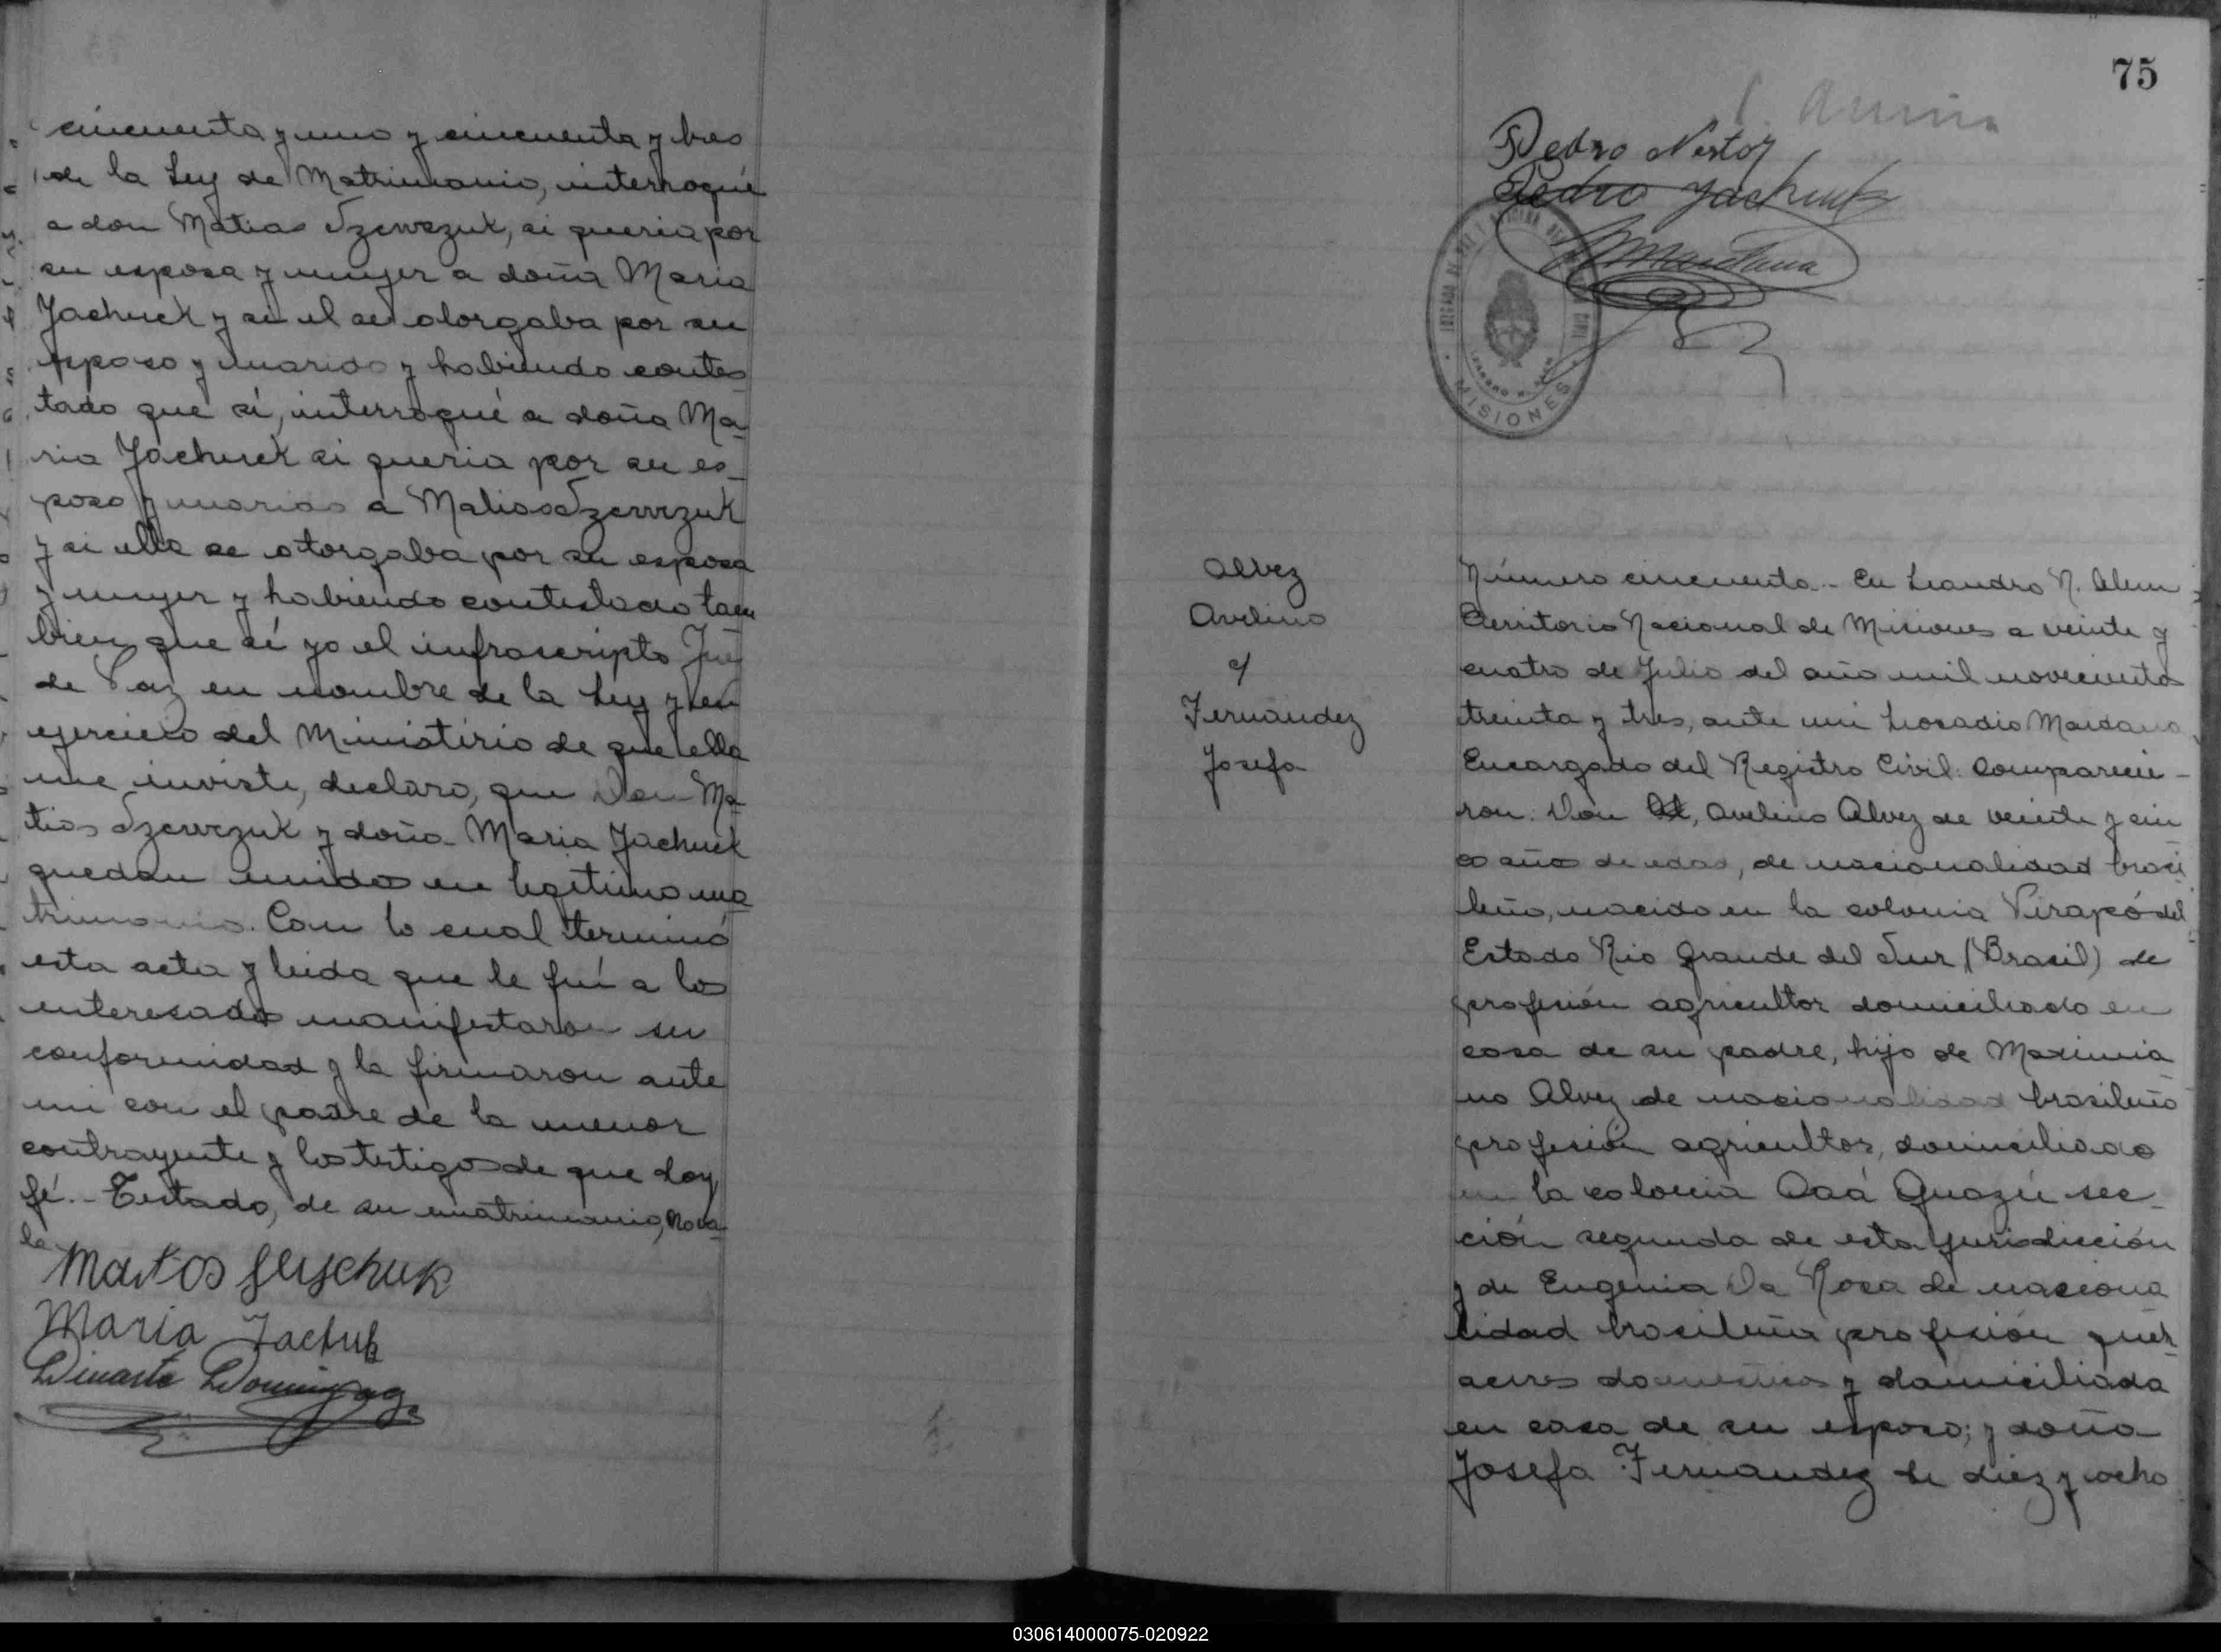 cincuenta y uno y cincuenta y tres
de la Ley de Matrimonio, interrogué
a don Matias Szewezuk, si queria por
su esposa y mujer a doña Maria
Jachuck y si el se otorgaba por su
esposo y marido y habiendo contes
tado que sí, interrogué a doña Ma-
ria Jachuck si queria por su es-
poso y marido a Matias Szewezuk
y si ella se otorgaba por su esposa
y mujer y habiendo contestado tam
bien que sí yo el infrascripto Juez
de Paz en nombre de la Ley y en
ejercicio del Ministirio de que ella
me inviste, declaro, que Don Ma-
tias Szewezuk y doña Maria Jachuck
quedan unidos en legitimo ma-
trimonio. Con lo cual terminó
esta acta y leida que le fué a los
interesados manifestaron su
conformidad y la firmaron ante
mi con el padre de la menor
contrayente y los testigos de que doy
fé.- Testado, de su matrimonio, no va-
le-
Maria Jachuk
75
Pedro Nestor
Pedro Jachuk
MISIONES
Alvez
Avelino
c/
Fernandez
Josefa
Número cincuenta.- En Leandro N. Alem
Territorio Nacional de Misiones a veinte y
cuatro de Julio del año mil novecientos
treinta y tres, ante mi
Encargado del Registro Civil: Comparecie-
ron: Don Avelino Alvez de veinte y cin
co años de edad, de nacionalidad brasi
leño, nacido en la colonia Pirapó del
Estado Rio Grande del Sur (Brasil) de
profesión agricultor domiciliado en
casa de su padre, hijo de Maximia
no Alvez de nacionalidad brasileño
profesión agricultor, domiciliado
en la colonia Caá Guazú sec-
ción segunda de esta jurisdicción
y de Eugenia Da Rosa de naciona
lidad brasileña profesión queh-
aceres domesticos y domiciliada
en casa de su esposo; y doña
Josefa Fernandez de diez y ocho
030614000075-020922